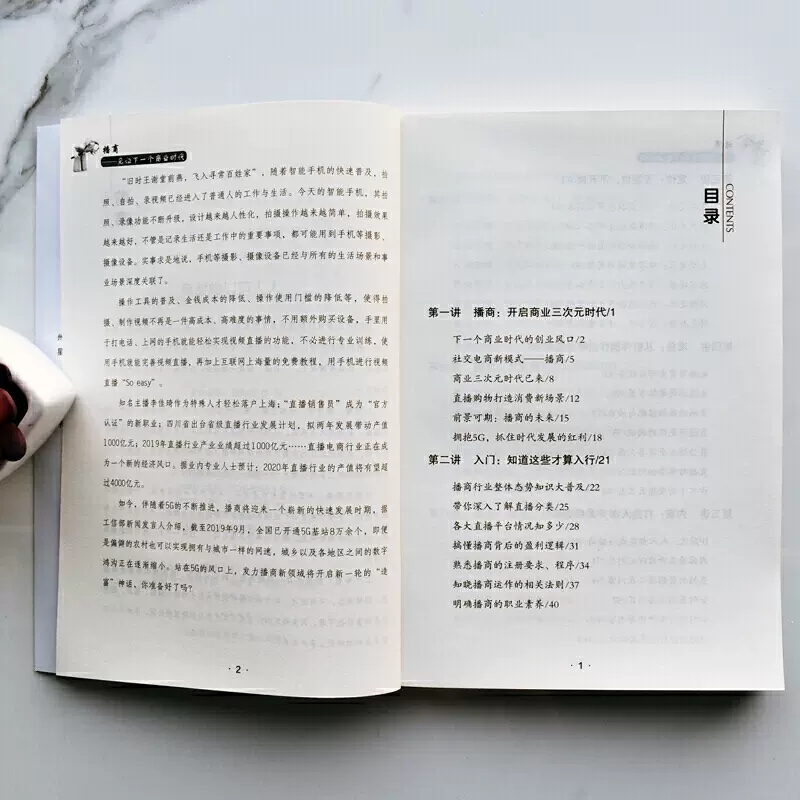 播商
——见证下一个商业时代
“旧时王谢堂前燕，飞入寻常百姓家”，随着智能手机的快速普及，拍
照、自拍、录视频已经进入了普通人的工作与生活。今天的智能手机，其拍
照、录像功能不断升级，设计越来越人性化，拍摄操作越来越简单，拍摄效果
越来越好，不管是记录生活还是工作中的重要事项，都可能用到手机等摄影、
摄像设备。实事求是地说，手机等摄影、摄像设备已经与所有的生活场景和事
业场景深度关联了。
操作工具的普及、金钱成本的降低、操作使用门槛的降低等，使得拍
摄、制作视频不再是一件高成本、高难度的事情，不用额外购买设备，手里用
于打电话、上网的手机就能轻松实现视频直播的功能，不必进行专业训练，使
用手机就能完善视频直播，再加上互联网上海量的免费教程，用手机进行视频
直播“So easy”。
知名主播李佳琦作为特殊人才轻松落户上海；“直播销售员”成为“官方
认证”的新职业；四川省出台省级直播行业发展计划，拟两年发展带动产值
1000亿元；2019年直播行业产业业绩超过1000亿元……直播电商行业正在成
为一个新的经济风口。据业内专业人士预计：2020年直播行业的产值将有望超
过4000亿元。
如今，伴随着5G的不断推进，播商将迎来一个崭新的快速发展时期。据
工信部新闻发言人介绍，截至2019年9月，全国已开通5G基站8万余个，即便
是偏僻的农村也可以实现拥有与城市一样的网速，城乡以及各地区之间的数字
鸿沟正在逐渐缩小。站在5G的风口上，发力播商新领域将开启新一轮的“造
富”神话、你准备好了吗？
· 2 ·
目录
CONTENTS
第一讲 播商：开启商业三次元时代/1
下一个商业时代的创业风口/2
社交电商新模式——播商/5
商业三次元时代已来/8
直播购物打造消费新场景/12
前景可期：播商的未来/15
拥抱5G，抓住时代发展的红利/18
第二讲 入门：知道这些才算入行/21
播商行业整体态势知识大普及/22
带你深入了解直播分类/25
各大直播平台情况知多少/28
搞懂播商背后的盈利逻辑/31
熟悉播商的注册要求、程序/34
知晓播商运作的相关法则/37
明确播商的职业素养/40
· 1 ·